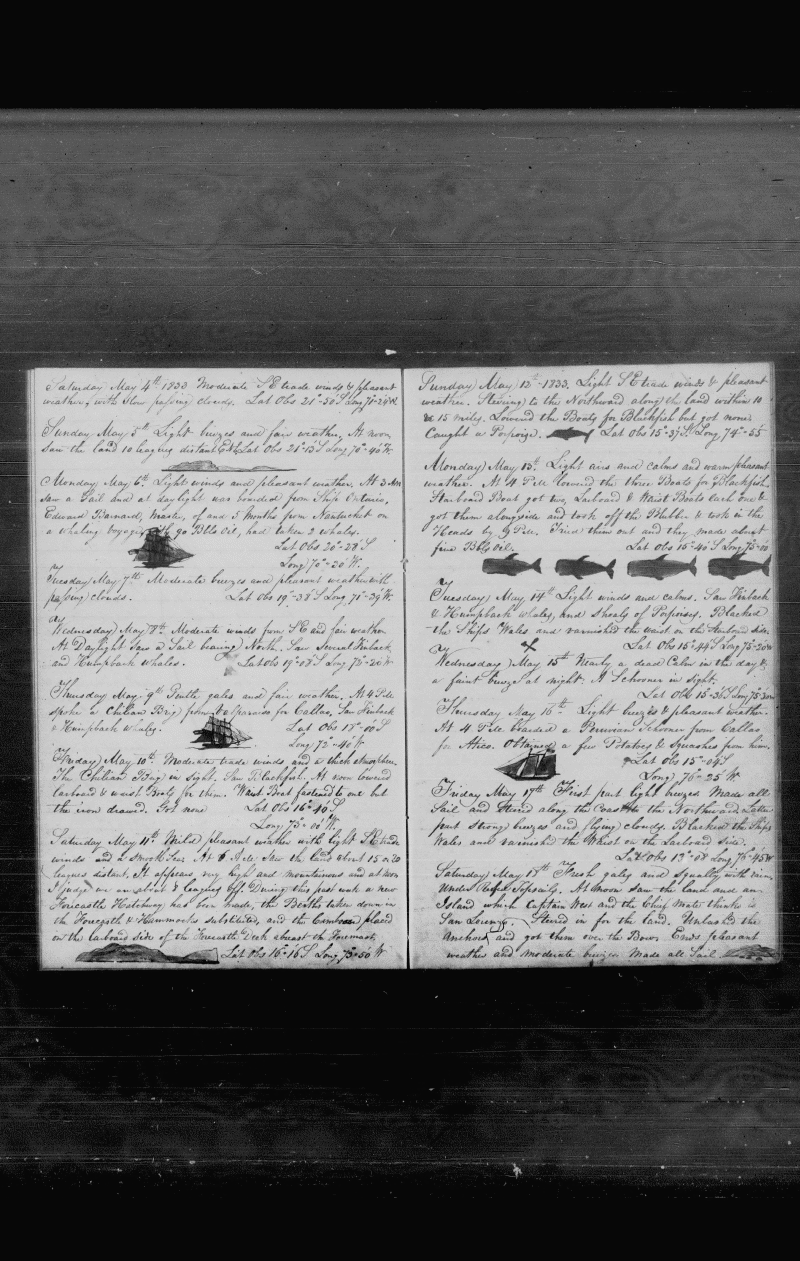 Saturday May 4th 1833 Moderate S E trade winds & pleasant
weather, with slow passing clouds. Lat Obs 21°-50' S Long 71°-24' W.
Sunday May 5th Light breezes and fair weather. At noon
saw the land 10 leagues distant Lat Obs 21°-13' S Long 70°-40' W
Monday May 6th Light winds and pleasant weather. At 3 AM
saw a Sail and at daylight was boarded from Ship Ontario,
Edward Barnard, Master, of and 5 Months from Nantucket on
a whaling voyage, with 90 Bbls Oil, had taken 2 whales.
Lat Obs 20°-28' S
Long 70°-20' W.
Tuesday May 7th Moderate breezes and pleasant weather with
passing clouds. Lat Obs 19°-38' S Long 71°-39' W.
Wednesday May 8th Moderate winds from S E and fair weather
At Daylight Saw a Sail bearing North. Saw several Finback
and Humpback whales. Lat Obs 19°-03' S Long 72°-26' W
Thursday May 9th Gentle gales and fair weather. At 4 P.M.
spoke a Chilian Brig from Valparaiso for Callao. Saw Finback
& Humpback whales. Lat Obs 18°-00' S
Long 72°-40' W
Friday May 10th Moderate trade winds and a thick atmosphere.
The Chilian Brig in sight. Saw Blackfish. At noon lowered
larboard & waist Boats for them. Waist Boat fastened to one but
the iron drawed. Got none Lat Obs 16°-40' S
Long 73°-00' W.
Saturday May 11th Mild pleasant weather with light S E trade
winds and a smooth Sea. At 6 A.M. Saw the land about 15 or 20
leagues distant, It appears very high and mountainous and at noon
I judge we are about 8 leagues off. During this past week a new
Forecastle Hatchway has been made, the Berths taken down in
the Foregoth & Hammocks substituted, and the placed
on the larboard side of the Forecastle Deck abreast the Foremast,
Lat Obs 16°-16' S Long 73°-50' W
Sunday May 12th 1833. Light S E trade winds & pleasant
weather. Steering to the Northward along the land within 10
& 15 miles. Lowered the Boats for Blackfish but got none.
Caught a Porpoise. Lat Obs 15°-37' S. Long 74°-55'
Monday May 13th Light airs and calms and warm pleasant
weather. At 4 P.M. lowered the three Boats for Blackfish.
Starboard Boat got two, Larboard & Waist Boats each one &
got them alongside and took off the Blubber & took in the
Heads by 9 P.M. Tried them out and they made about
five Bbls Oil. Lat Obs 15°-40' S Long 75°-00'
Tuesday May 14th Light winds and calms. Saw Finback
& Humpback whales, and shoals of Porpoises. Blacked
the Ships Wales and varnished the waist on the Starboard side.
Lat Obs 15°-44' S Long 75°-20' W
Wednesday May 15th Nearly a dead Calm in the day &
a faint breeze at night. A Schooner in sight.
Lat Obs 15°-36' S Long 75°-30' W
Thursday May 16th Light breezes & pleasant weather.
At 4 P.M. boarded a Peruvian Schooner from Callao
for Atico. Obtained a few Potatoes & Squashes from him.
Lat Obs 15°-04' S
Long 76°-25' W.
Friday May 17th First part light breezes. Made all
Sail and steered along the Coast to the Northward. Latter
part strong breezes and flying clouds. Blacked the Ships
Wales and varnished the Waist on the Larboard side.
Lat Obs 13°-08' Long 76°-45' W
Saturday May 18th Fresh gales and Squally with rain,
Under Topsails. At Noon saw the land and an
Island which Captain West and the Chief Mate thinks is
San Lorenzo. Steered in for the land. Unlashed the
Anchors and got them over the Bows. Ends pleasant
weather and moderate breezes. Made all Sail